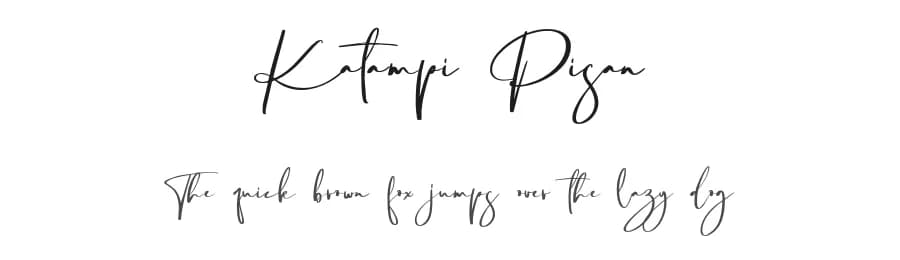 Katampi Pisan
The quick brown fox jumps over the lazy dog